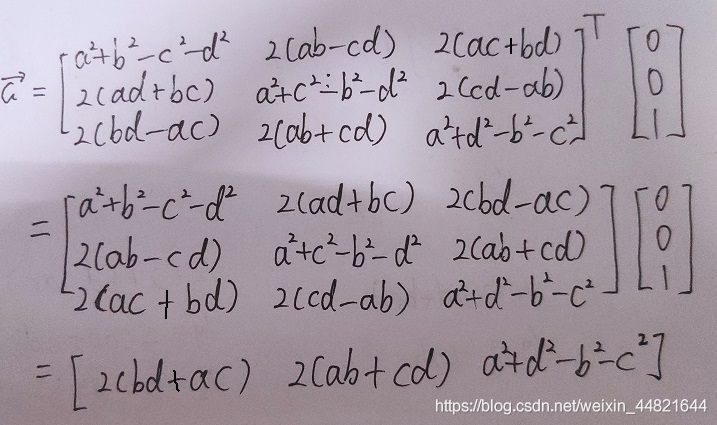 a²+b²-c²-d² 2(ab-cd) 2(ac+bd) T 0
a⃗ = 2(ad+bc) a²+c²-b²-d² 2(cd-ab) 0
2(bd-ac) 2(ab+cd) a²+d²-b²-c² 1
a²+b²-c²-d² 2(ad+bc) 2(bd-ac) 0
= 2(ab-cd) a²+c²-b²-d² 2(ab+cd) 0
2(ac+bd) 2(cd-ab) a²+d²-b²-c² 1
= [2(bd+ac) 2(ab+cd) a²+d²-b²-c²]
https://blog.csdn.net/weixin_44821644